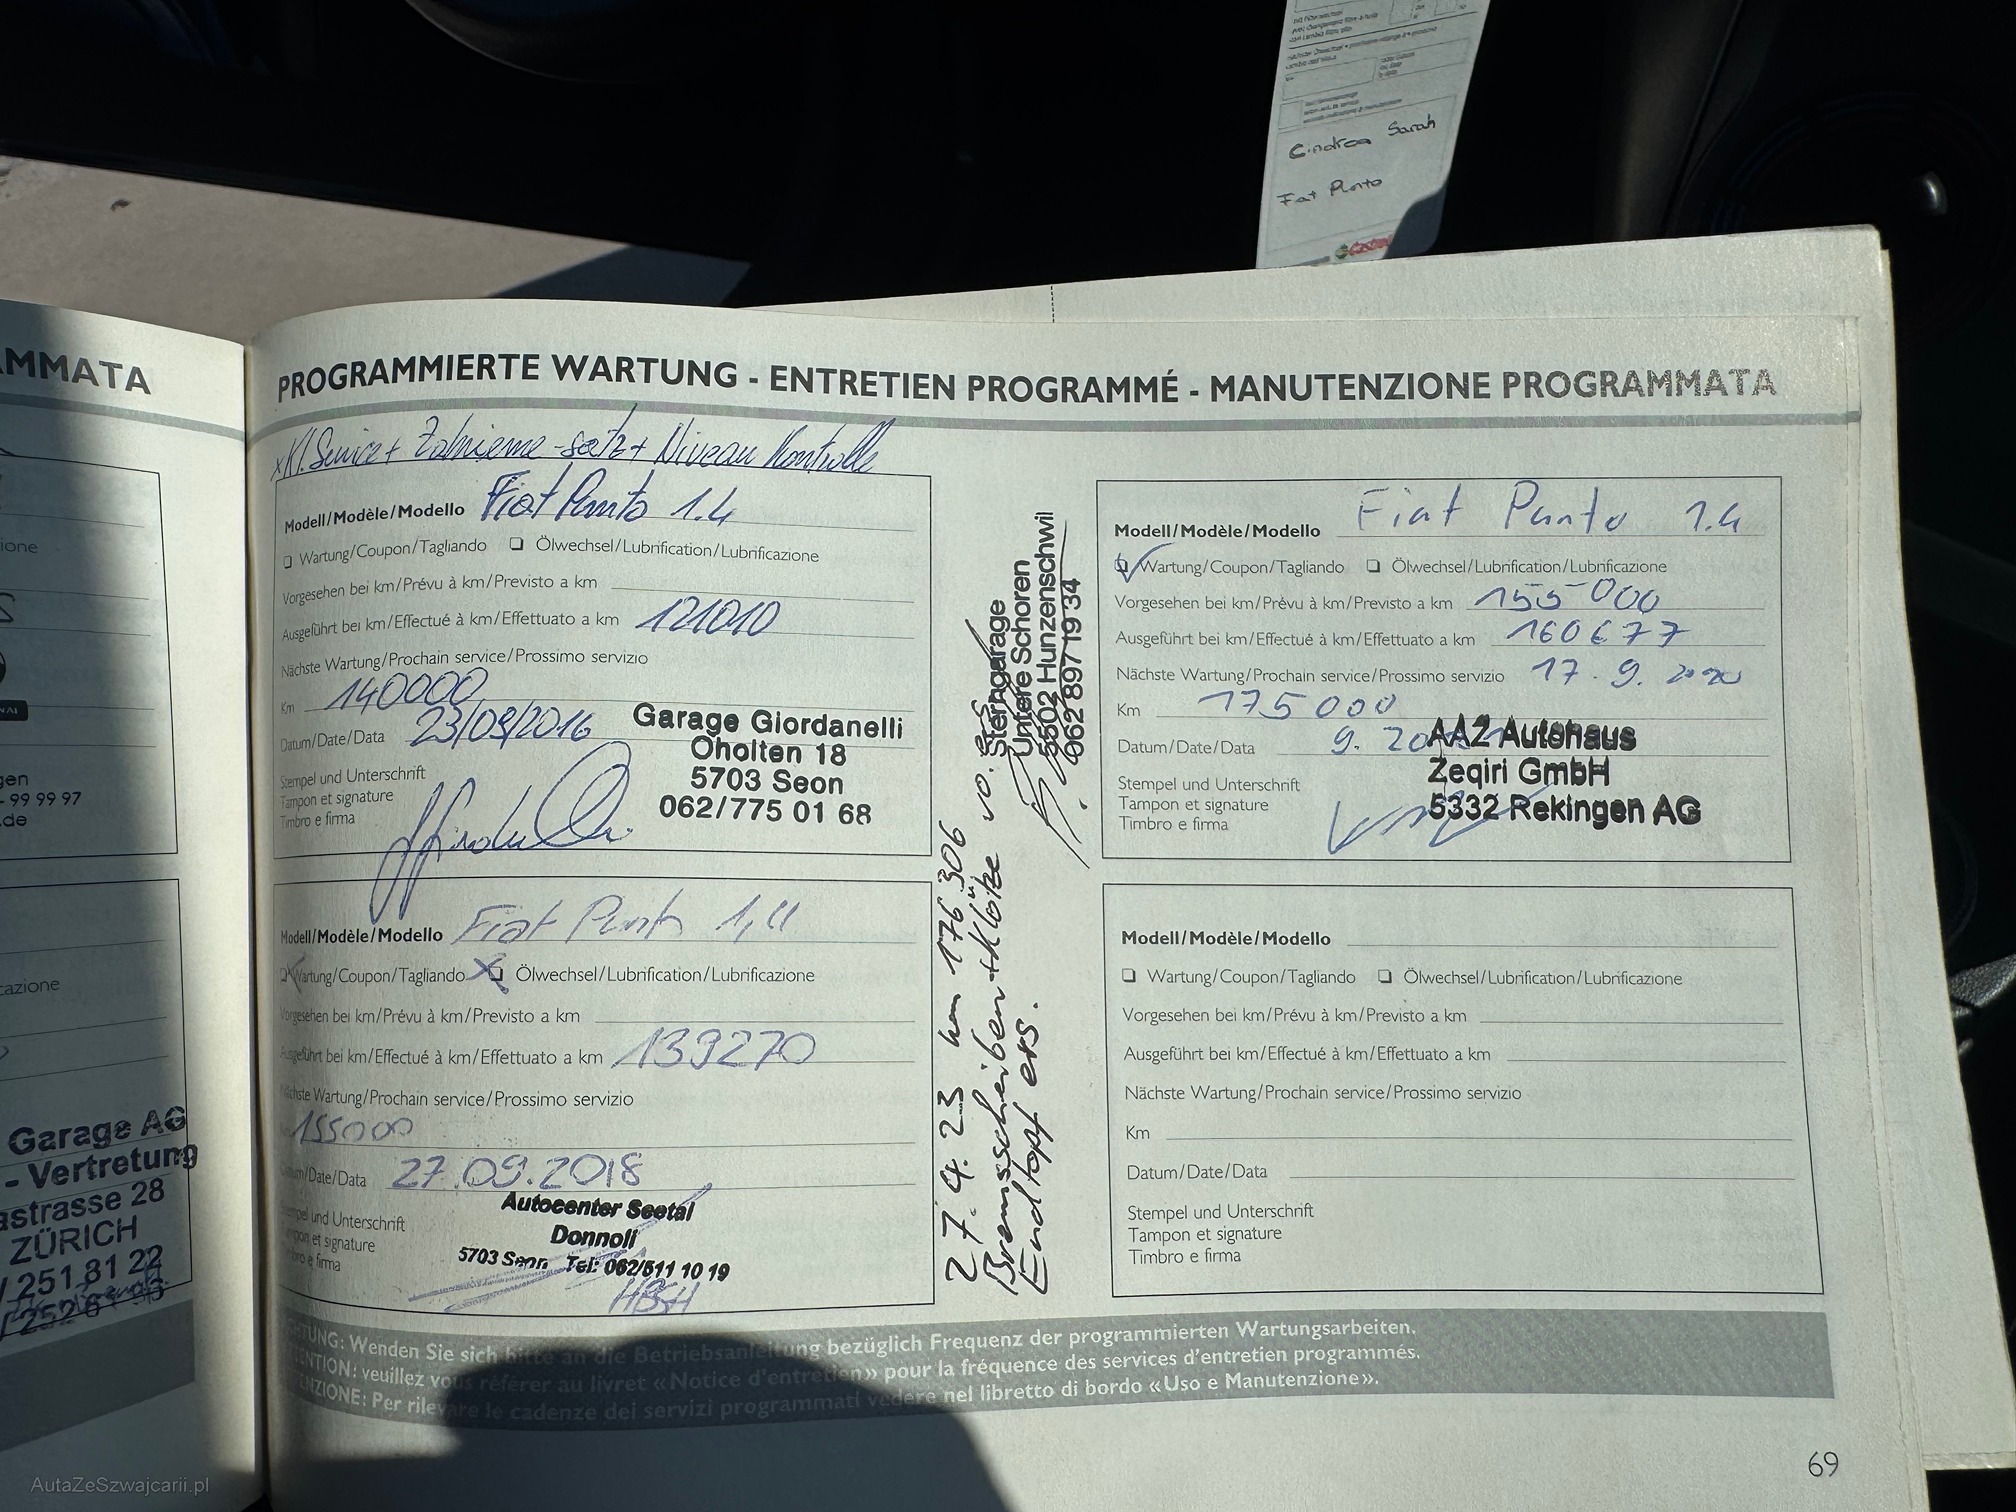 Cindrea Sarah
Fiat Punto
Castrol
MMATA
PROGRAMMIERTE WARTUNG - ENTRETIEN PROGRAMMÉ - MANUTENZIONE PROGRAMMATA
Kl. Service + Zahnrieme-satz + Niveau Kontrolle
Modell/Modèle/Modello Fiat Punto 1.4
Wartung/Coupon/Tagliando Ölwechsel/Lubrification/Lubrificazione
Vorgesehen bei km/Prévu à km/Previsto a km
Ausgeführt bei km/Effectué à km/Effettuato a km 121010
Nächste Wartung/Prochain service/Prossimo servizio
Km 140000
Datum/Date/Data 23/09/2016
Stempel und Unterschrift
Tampon et signature
Timbro e firma
Garage Giordanelli
Oholten 18
5703 Seon
062/775 01 68
Modell/Modèle/Modello Fiat Punto 1,4
Wartung/Coupon/Tagliando Ölwechsel/Lubrification/Lubrificazione
Vorgesehen bei km/Prévu à km/Previsto a km
Ausgeführt bei km/Effectué à km/Effettuato a km 139270
Nächste Wartung/Prochain service/Prossimo servizio
155000
Datum/Date/Data 27.09.2018
Stempel und Unterschrift
Tampon et signature
Timbro e firma
Autocenter Seetal
Donnoli
5703 Seon Tel: 062/511 10 19
27.4.23 km 176306
Bremsscheiben + Klötze vo. ers
Endtopf ers.
Sterngarage
Untere Schoren
5502 Hunzenschwil
062 897 19 34
Modell/Modèle/Modello Fiat Punto 1.4
Wartung/Coupon/Tagliando Ölwechsel/Lubrification/Lubrificazione
Vorgesehen bei km/Prévu à km/Previsto a km 155000
Ausgeführt bei km/Effectué à km/Effettuato a km 160677
Nächste Wartung/Prochain service/Prossimo servizio 17.9.2020
Km 175000
Datum/Date/Data 9.
Stempel und Unterschrift
Tampon et signature
Timbro e firma
AAZ Autohaus
Zeqiri GmbH
5332 Rekingen AG
Modell/Modèle/Modello
Wartung/Coupon/Tagliando Ölwechsel/Lubrification/Lubrificazione
Vorgesehen bei km/Prévu à km/Previsto a km
Ausgeführt bei km/Effectué à km/Effettuato a km
Nächste Wartung/Prochain service/Prossimo servizio
Km
Datum/Date/Data
Stempel und Unterschrift
Tampon et signature
Timbro e firma
- 99 99 97
.de
Garage AG
- Vertretung
strasse 28
ZÜRICH
/ 251 81 22
TUNG: Wenden Sie sich bitte an die Betriebsanleitung bezüglich Frequenz der programmierten Wartungsarbeiten.
ENTION: veuillez vous référer au livret «Notice d'entretien» pour la fréquence des services d'entretien programmés.
ENZIONE: Per rilevare le cadenze dei servizi programmati vedere nel libretto di bordo «Uso e Manutenzione».
69
AutaZeSzwajcarii.pl